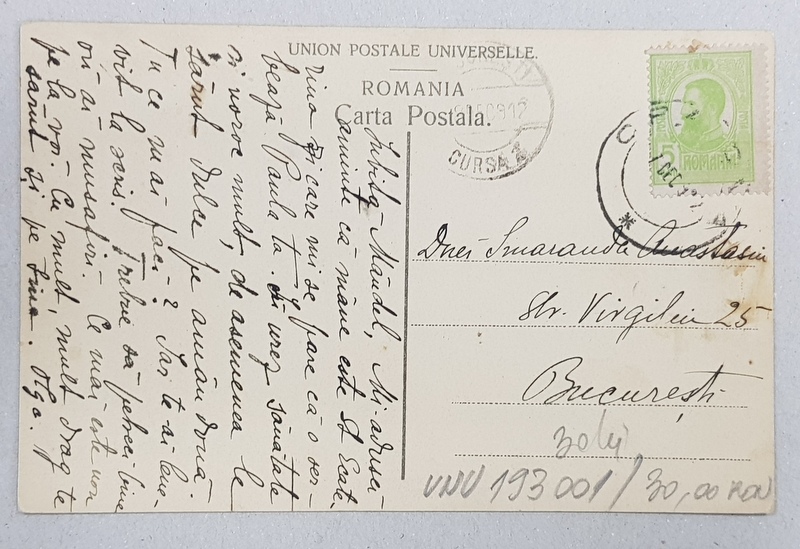 UNION POSTALE UNIVERSELLE.
ROMANIA
Carta Postala.
CURSA 1
5 ROMANIA
Iubită Mândel, Mi-adusei
aminte că mâine este St Ecate-
rina și care mi se pare că o ser-
bează Paula ta. Îi urez sănătate
și noroc mult, de asemenea le
sărut dulce pe amândouă.
Tu ce mai faci? Iar te ai lene-
vit la scris. Trebue să petreci bine
ori ai musafiri. Ce mai este nou
pe la voi. Cu mult, mult drag te
sărut și pe tine. Olga.
Dnei Smaranda Anastasiu
Str. Virgiliu 25
București
30 lei
VNV 193 001 / 30,00 RON